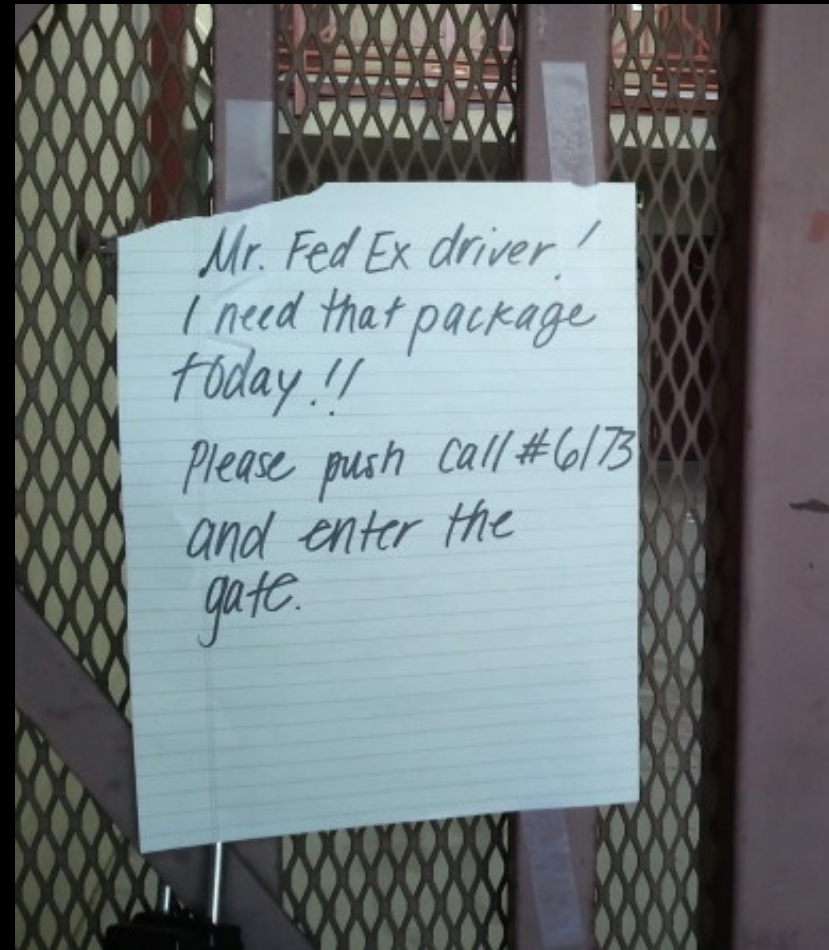 Mr. Fed Ex driver!
I need that package
today!!
Please push call #6173
and enter the
gate.